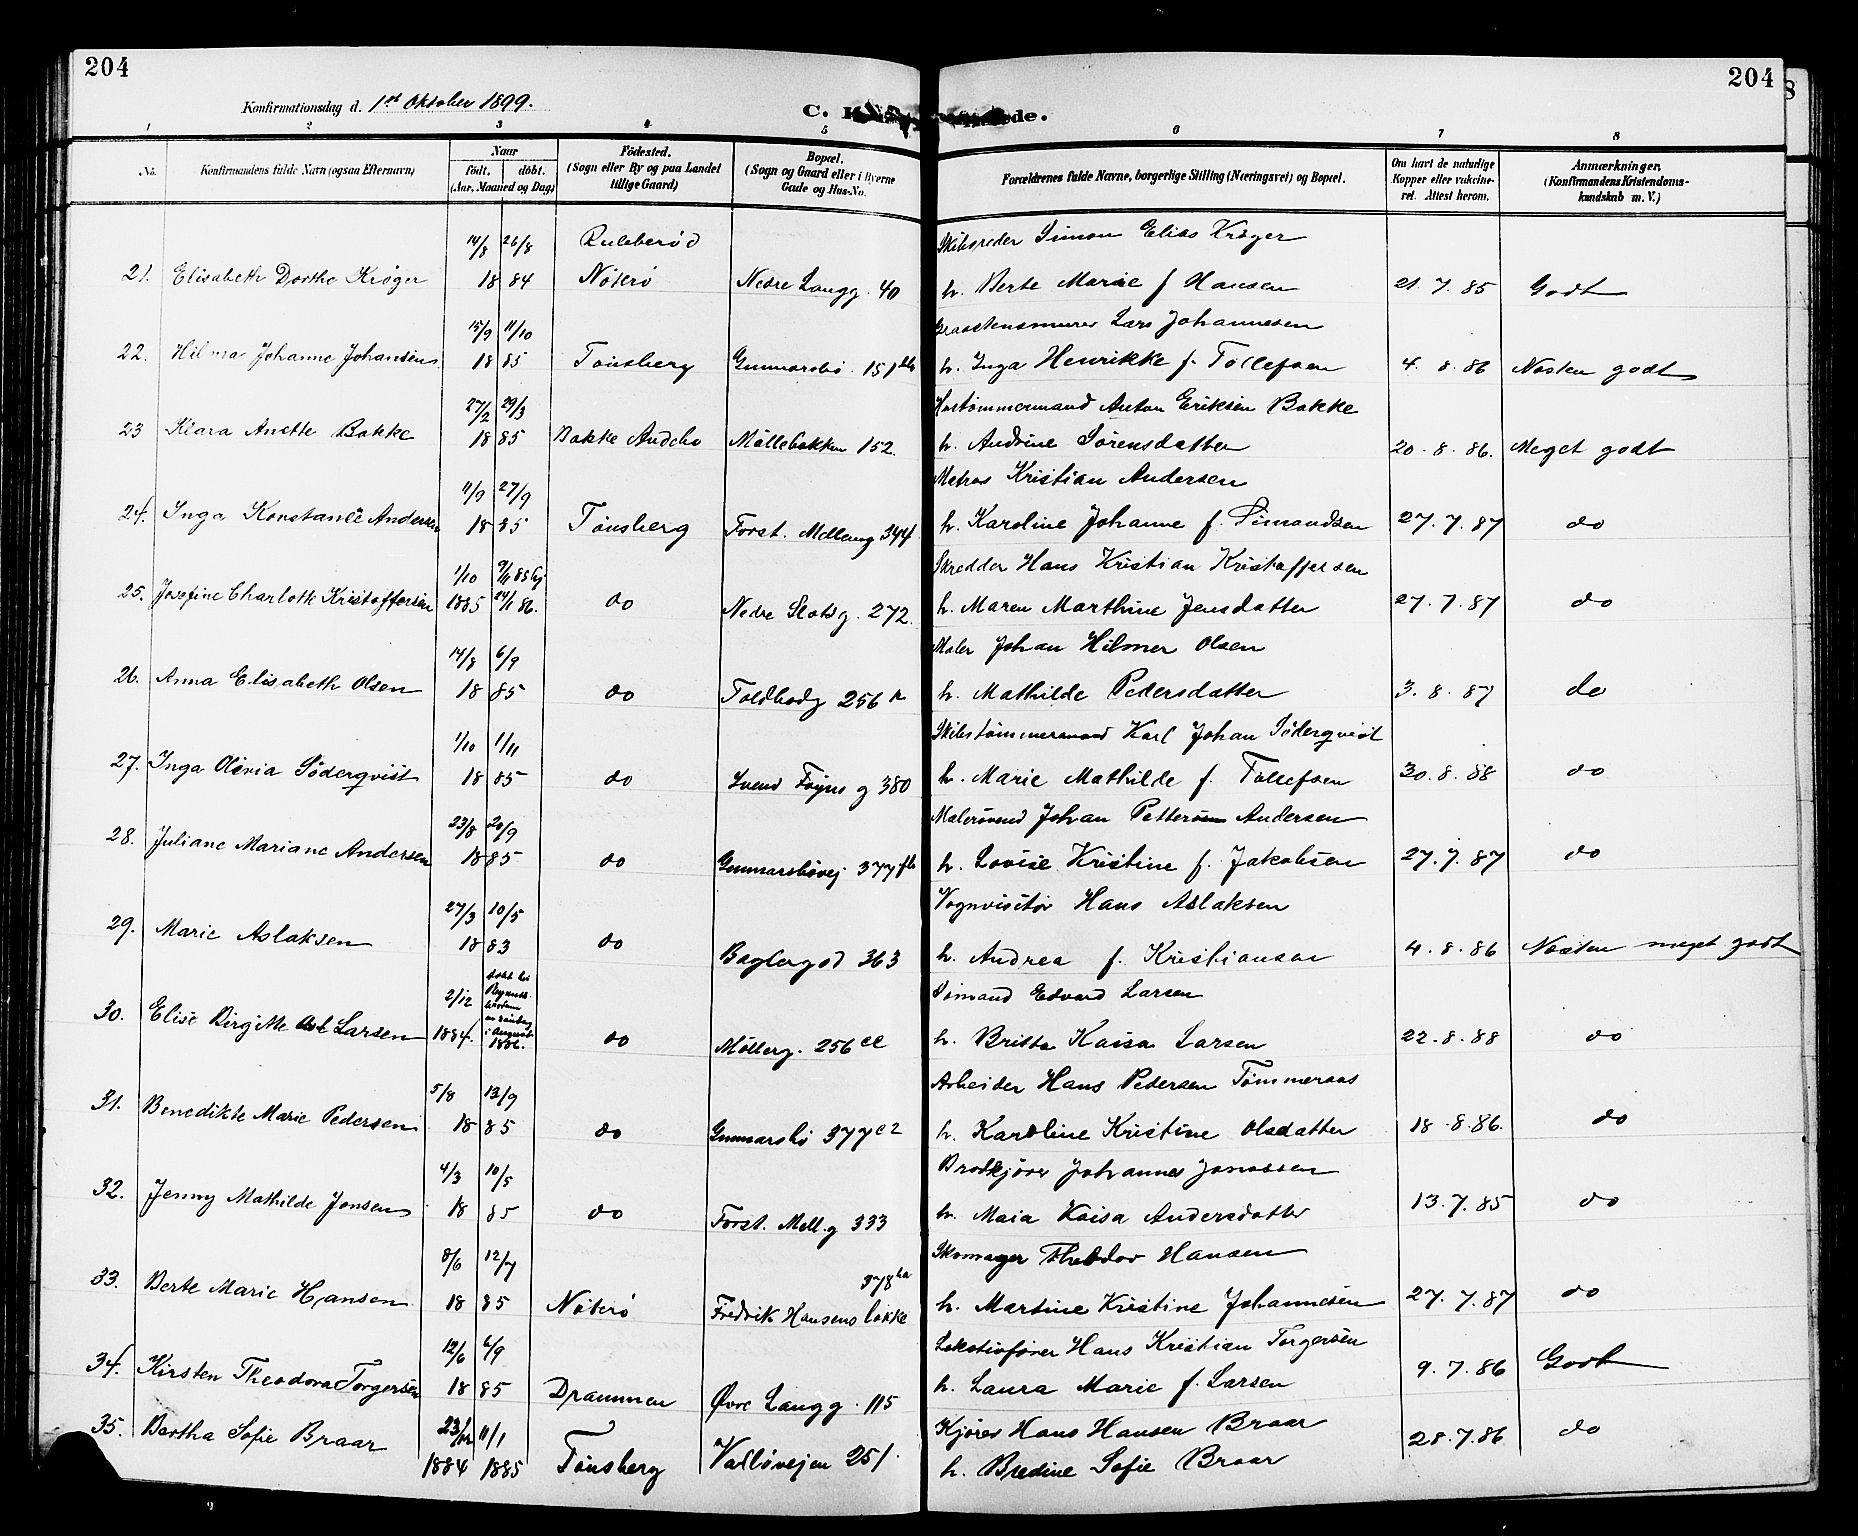 204
204
8
Konfirmationsdag d. 1st Oktober 1899.
C.
1 2 3 4 5 6 7 8
No. Konfirmandens fulde Navn (ogsaa Efternavn) Naar født, døbt. (Aar, Maaned og Dag) Fødested. (Sogn eller By og paa Landet tillige Gaard) Bopæl. (Sogn og Gaard eller i Byerne Gade og Hus-No. Forældrenes fulde Navne, borgerlige Stilling (Næringsvei) og Bopæl. Om havt de naturlige Kopper eller vakcineret. Attest herom. Anmærkninger, (Konfirmandens Kristendomskundskab m. V.)
14/8 26/8 Skibsreder Simon Elias Krøger
21. Elisabeth Dorthe Krøger 18 84 Nøterø Nedre Langg. 40 h. Berte Marie f Hansen 21.7.85 Godt
15/9 11/10 Graastensmurer Lars Johannesen
22. Hilma Johanne Johansen 18 85 Tønsberg Gunnarsbø 151 h. Inga Henrikke f. Tollefsen 4.8.86 Næsten godt
27/2 29/3 Hustømmermand Anton Eriksen Bakke
23 Klara Anette Bakke 18 85 Bakke Andebu Møllebakken 152. h. Andrine Sørensdatter 20.8.86. Meget godt
11/9 27/9 Matros Kristian Andersen
24. Inga Konstance Andersen 18 85 Tønsberg Forst. Mellemg 344 h. Karoline Johanne f. Simondsen 27.7.87 do
1/10 9/11 85 hj Skredder Hans Kristian Kristoffersen
25. Josefine Charlotte Kristoffersen 1885 24/1 86. do Nedre Slotsg. 272. h. Maren Marthine Jensdatter 27.7.87 do
14/8 6/9 Maler Johan Hilmer Olsen
26. Anna Elisabeth Olsen 18 85 do Toldbodg 256 h. Mathilde Pedersdatter 3.8.87 do
1/10 1/11 Skibstømmermand Karl Johan Söderqvist
27. Inga Olivia Söderqvist 18 85 do Svend Foyns g 380 h. Marie Mathilde f. Tollefsen 30.8.88 do
23/8 20/9 Malersvend Johan Petter Andersen
28. Juliane Mariane Andersen 18 85 do Gunnarsbøvej 377 h. Lovise Kristine f. Jakobsen 27.7.87 do
27/3 10/5 Vognvisitør Hans Aslaksen
29. Marie Aslaksen 18 83 do Baglergd 363 h. Andrea f. Kristiansen 4.8.86 Næsten meget godt
2/12 Sømand Edvard Larsen
30. Elise Birgitte Larsen 1884. i August 1886. do Møllerg. 256 cc h. Britta Kaisa Larsen 22.8.88 do
5/8 13/9 Arbeider Hans Pedersen Tømmeraas
31. Benedikte Marie Pedersen 18 85 do Gunnarsbø 377 c2 h. Karoline Kristine Olsdatter 18.8.86. do
4/3 10/5 Brødkjører Johannes Jonassen
32. Jenny Mathilde Jonsen 18 85 do Forst. Mell.g 333 h. Maia Kaisa Andersdatter 13.7.85 do
8/6 12/7 378 Skomager Theodor Hansen
33. Berte Marie Hansen 18 85 Nøterø Fredrik Hansens løkke h. Martine Kristine Johannesen 27.7.87 do
12/6 6/9 Lokotivfører Hans Kristian Torgersen
34. Kirsten Theodora Torgersen 18 85 Drammen Øvre Langg. 115 h. Laura Marie f. Larsen 9.7.86 Godt
23/12 11/1 Kjører Hans Hansen Braar
35. Bertha Sofie Braar 1884 1885 Tønsberg Valløvejen 251. h. Bredine Sofie Braar 28.7.86 do